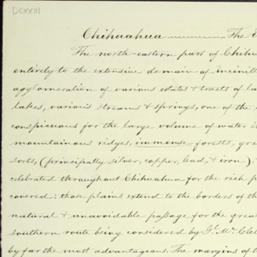 DCXXIII
Chihuahua ———— The
The north-eastern part of Chihu
entirely to the extensive domain of
agglomeration of various estates & tracts of la
lakes, various streams & springs, one of the
conspicuous for the large volume of water i
mountainous ridges, immense forests, gre
sorts, (principally silver, copper, lead, & iron).
celebrated throughout Chihuahua for the rich p
covered: those plains extend to the borders of th
natural & unavoidable passage for the grea
southern route being considered by Mc. Clel
by far the most advantageous. The margins of t